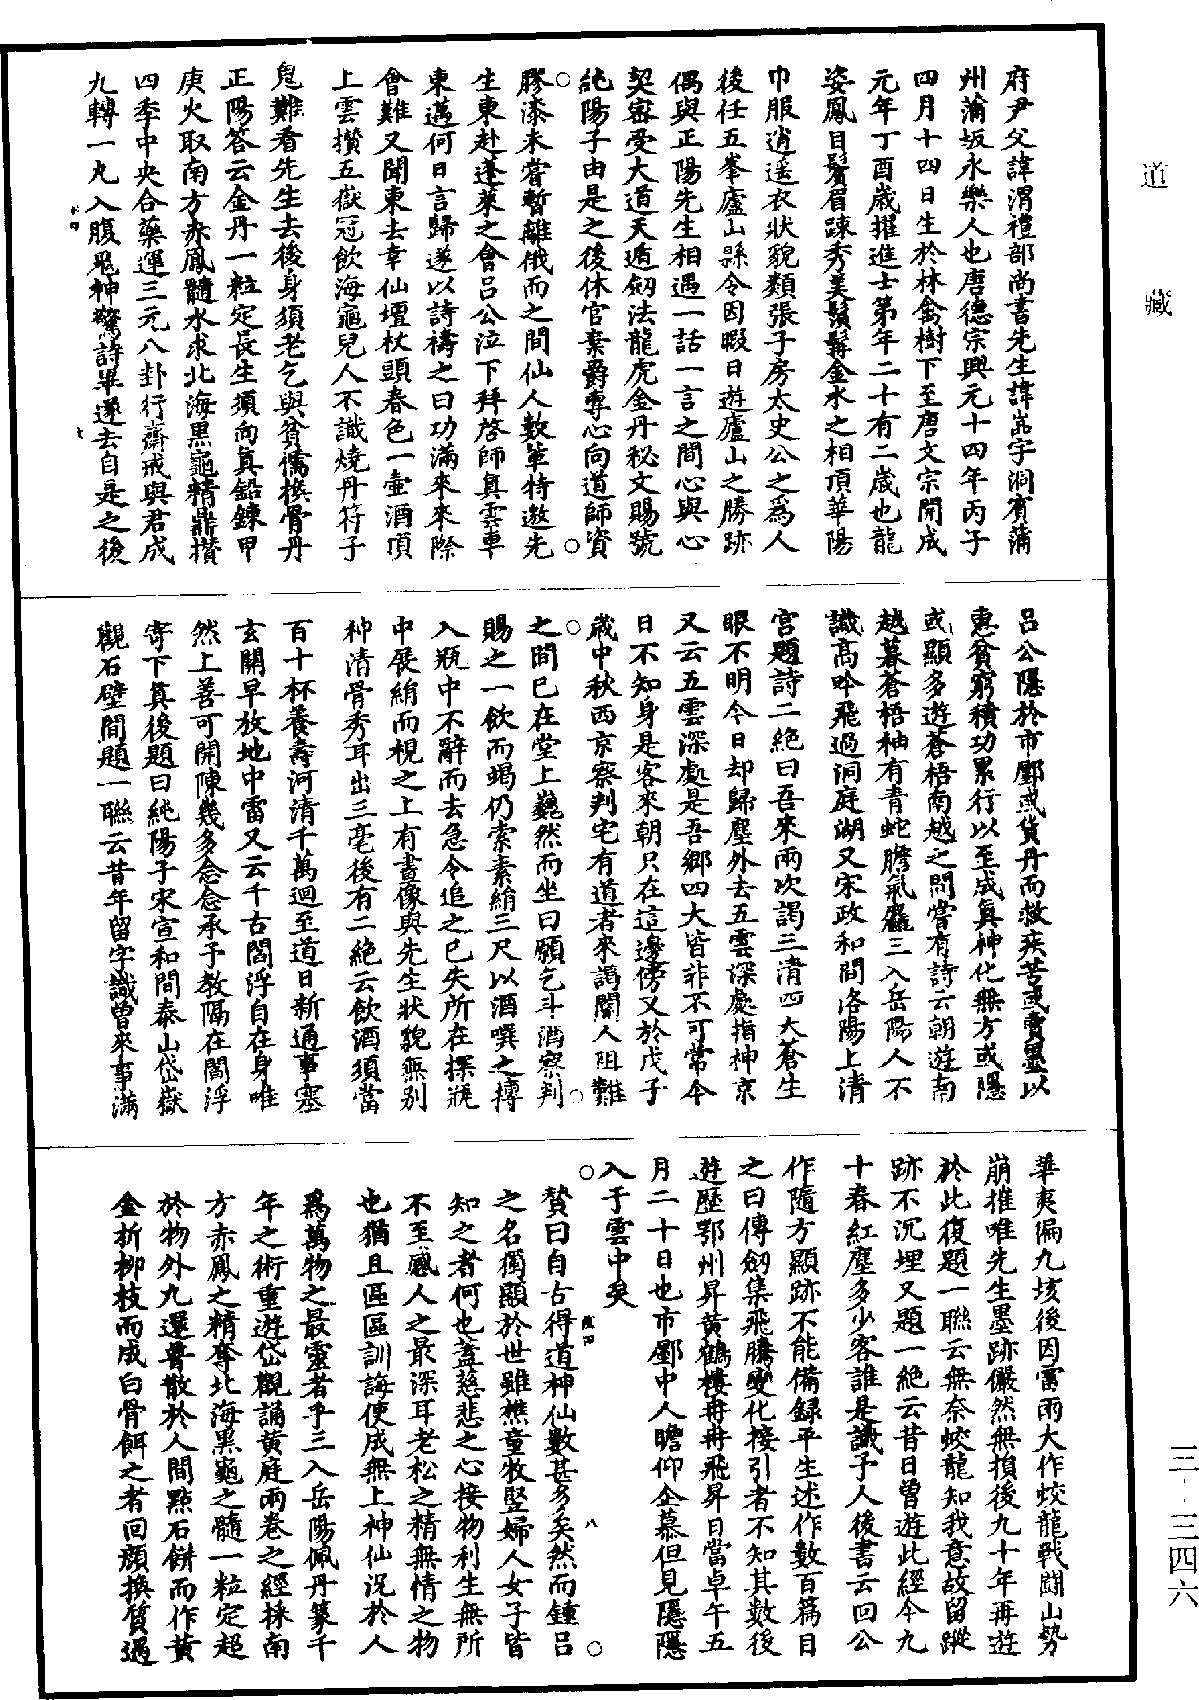 道藏
府尹父諱渭禮部尚書先生諱嵓字洞賓蒲
州蒲坂永樂人也唐德宗興元十四年丙子
四月十四日生於林禽樹下至唐文宗開成
元年丁酉歲擢進士第年二十有二歲也龍
姿鳳目鬢眉踈秀美鬚髯金水之相頂華陽
巾服逍遥衣狀貌類張子房太史公之爲人
後任五峯廬山縣令因暇日遊廬山之勝跡
偶與正陽先生相遇一話一言之間心與心
契密受大道天遁劔法龍虎金丹秘文賜號
純陽子由是之後休官棄爵專心向道師資
膠漆未嘗暫離俄而之間仙人數輩特邀先
生東赴蓬萊之會吕公泣下拜啓師真雲車
東邁何日言歸遂以詩禱之曰功滿來來除
會難又聞東去幸仙壇杖頭春色一壷酒頂
上雲攅五嶽冠飲海龜兒人不識燒丹符子
鬼難看先生去後身須老乞與貧儒換骨丹
正陽答云金丹一粒定長生須向真鉛鍊甲
庚火取南方赤鳳髓水求北海黑龜精鼎攅
四季中央合藥運三元八卦行齋戒與君成
九轉一丸入腹鬼神驚詩畢遂去自是之後
吕公隱於市鄽或貨丹而救疾苦或賣墨以
惠貧窮積功累行以至成真神化無方或隱
或顯多遊蒼梧南越之間嘗有詩云朝遊南
越暮蒼梧袖有青蛇膽氣麤三入岳陽人不
識高吟飛過洞庭湖又宋政和間洛陽上清
宫題詩二絶曰吾來兩次謁三清四大蒼生
眼不明今日却歸塵外去五雲深處指神京
又云五雲深處是吾鄉四大皆非不可常今
日不知身是客來朝只在這邊傍又於戊子
歲中秋西京察判宅有道者來謁閽人阻難
之間巳在堂上巍然而坐曰願乞斗酒察判
賜之一飲而竭仍索素絹三尺以酒噀之摶
入瓶中不辭而去急令追之巳失所在探瓶
中展絹而視之上有畫像與先生狀貌無别
神清骨秀耳出三毫後有二絶云飲酒須當
百十杯養壽河清千萬迴至道日新通事塞
玄關早放地中雷又云千古閻浮自在身唯
然上善可開陳幾多念念承子教隔在閻浮
寄下真後題曰純陽子宋宣和間泰山岱嶽
觀石壁間題一聯云昔年留字識曾來事滿
華夷徧九垓後因雷雨大作蛟龍戰鬪山勢
崩摧唯先生墨跡儼然無損後九十年再遊
於此復題一聯云無奈蛟龍知我意故留蹤
跡不沉埋又題一絶云昔日曾遊此經今九
十春紅塵多少客誰是識予人後書云回公
作隨方顯跡不能備録平生述作數百篇目
之曰傳劔集飛騰變化接引者不知其數後
遊歷鄂州昇黄鶴樓冉冉飛昇日當卓午五
月二十日也市鄽中人瞻仰企慕但見隱隱
入于雲中矣
贊曰自古得道神仙數甚多矣然而鍾吕
之名獨顯於世雖樵童牧竪婦人女子皆
知之者何也蓋慈悲之心接物利生無所
不至感人之最深耳老松之精無情之物
也猶且區區訓誨使成無上神仙況於人
爲萬物之最靈者乎三入岳陽佩丹篆千
年之術重遊岱觀誦黄庭兩卷之經採南
方赤鳳之精奪北海黑龜之髓一粒定超
於物外九還普散於人間點石餅而作黄
金折柳枝而成白骨餌之者回顔換質遇
三-三四六